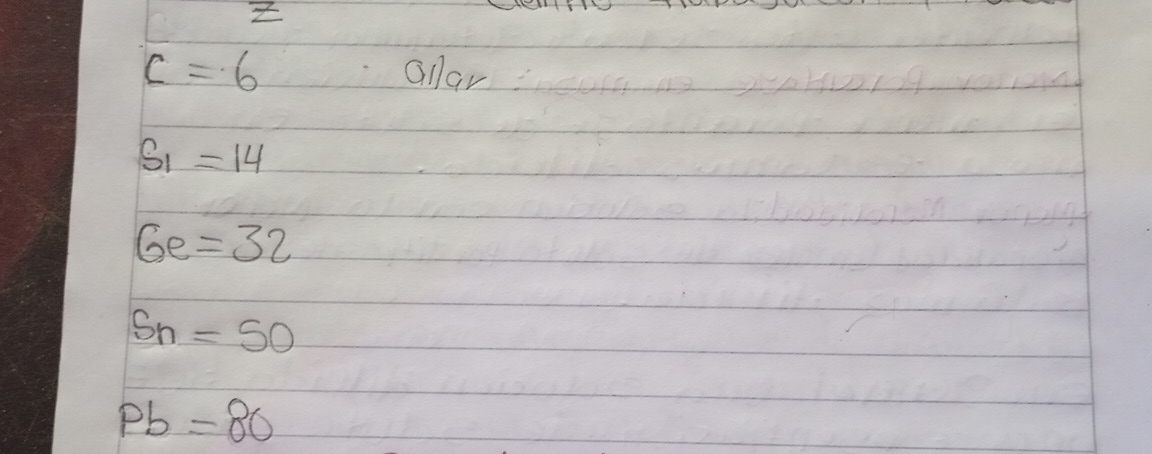 Z
C = 6 allar
Si = 14
Ge = 32
Sn = 50
Pb = 80